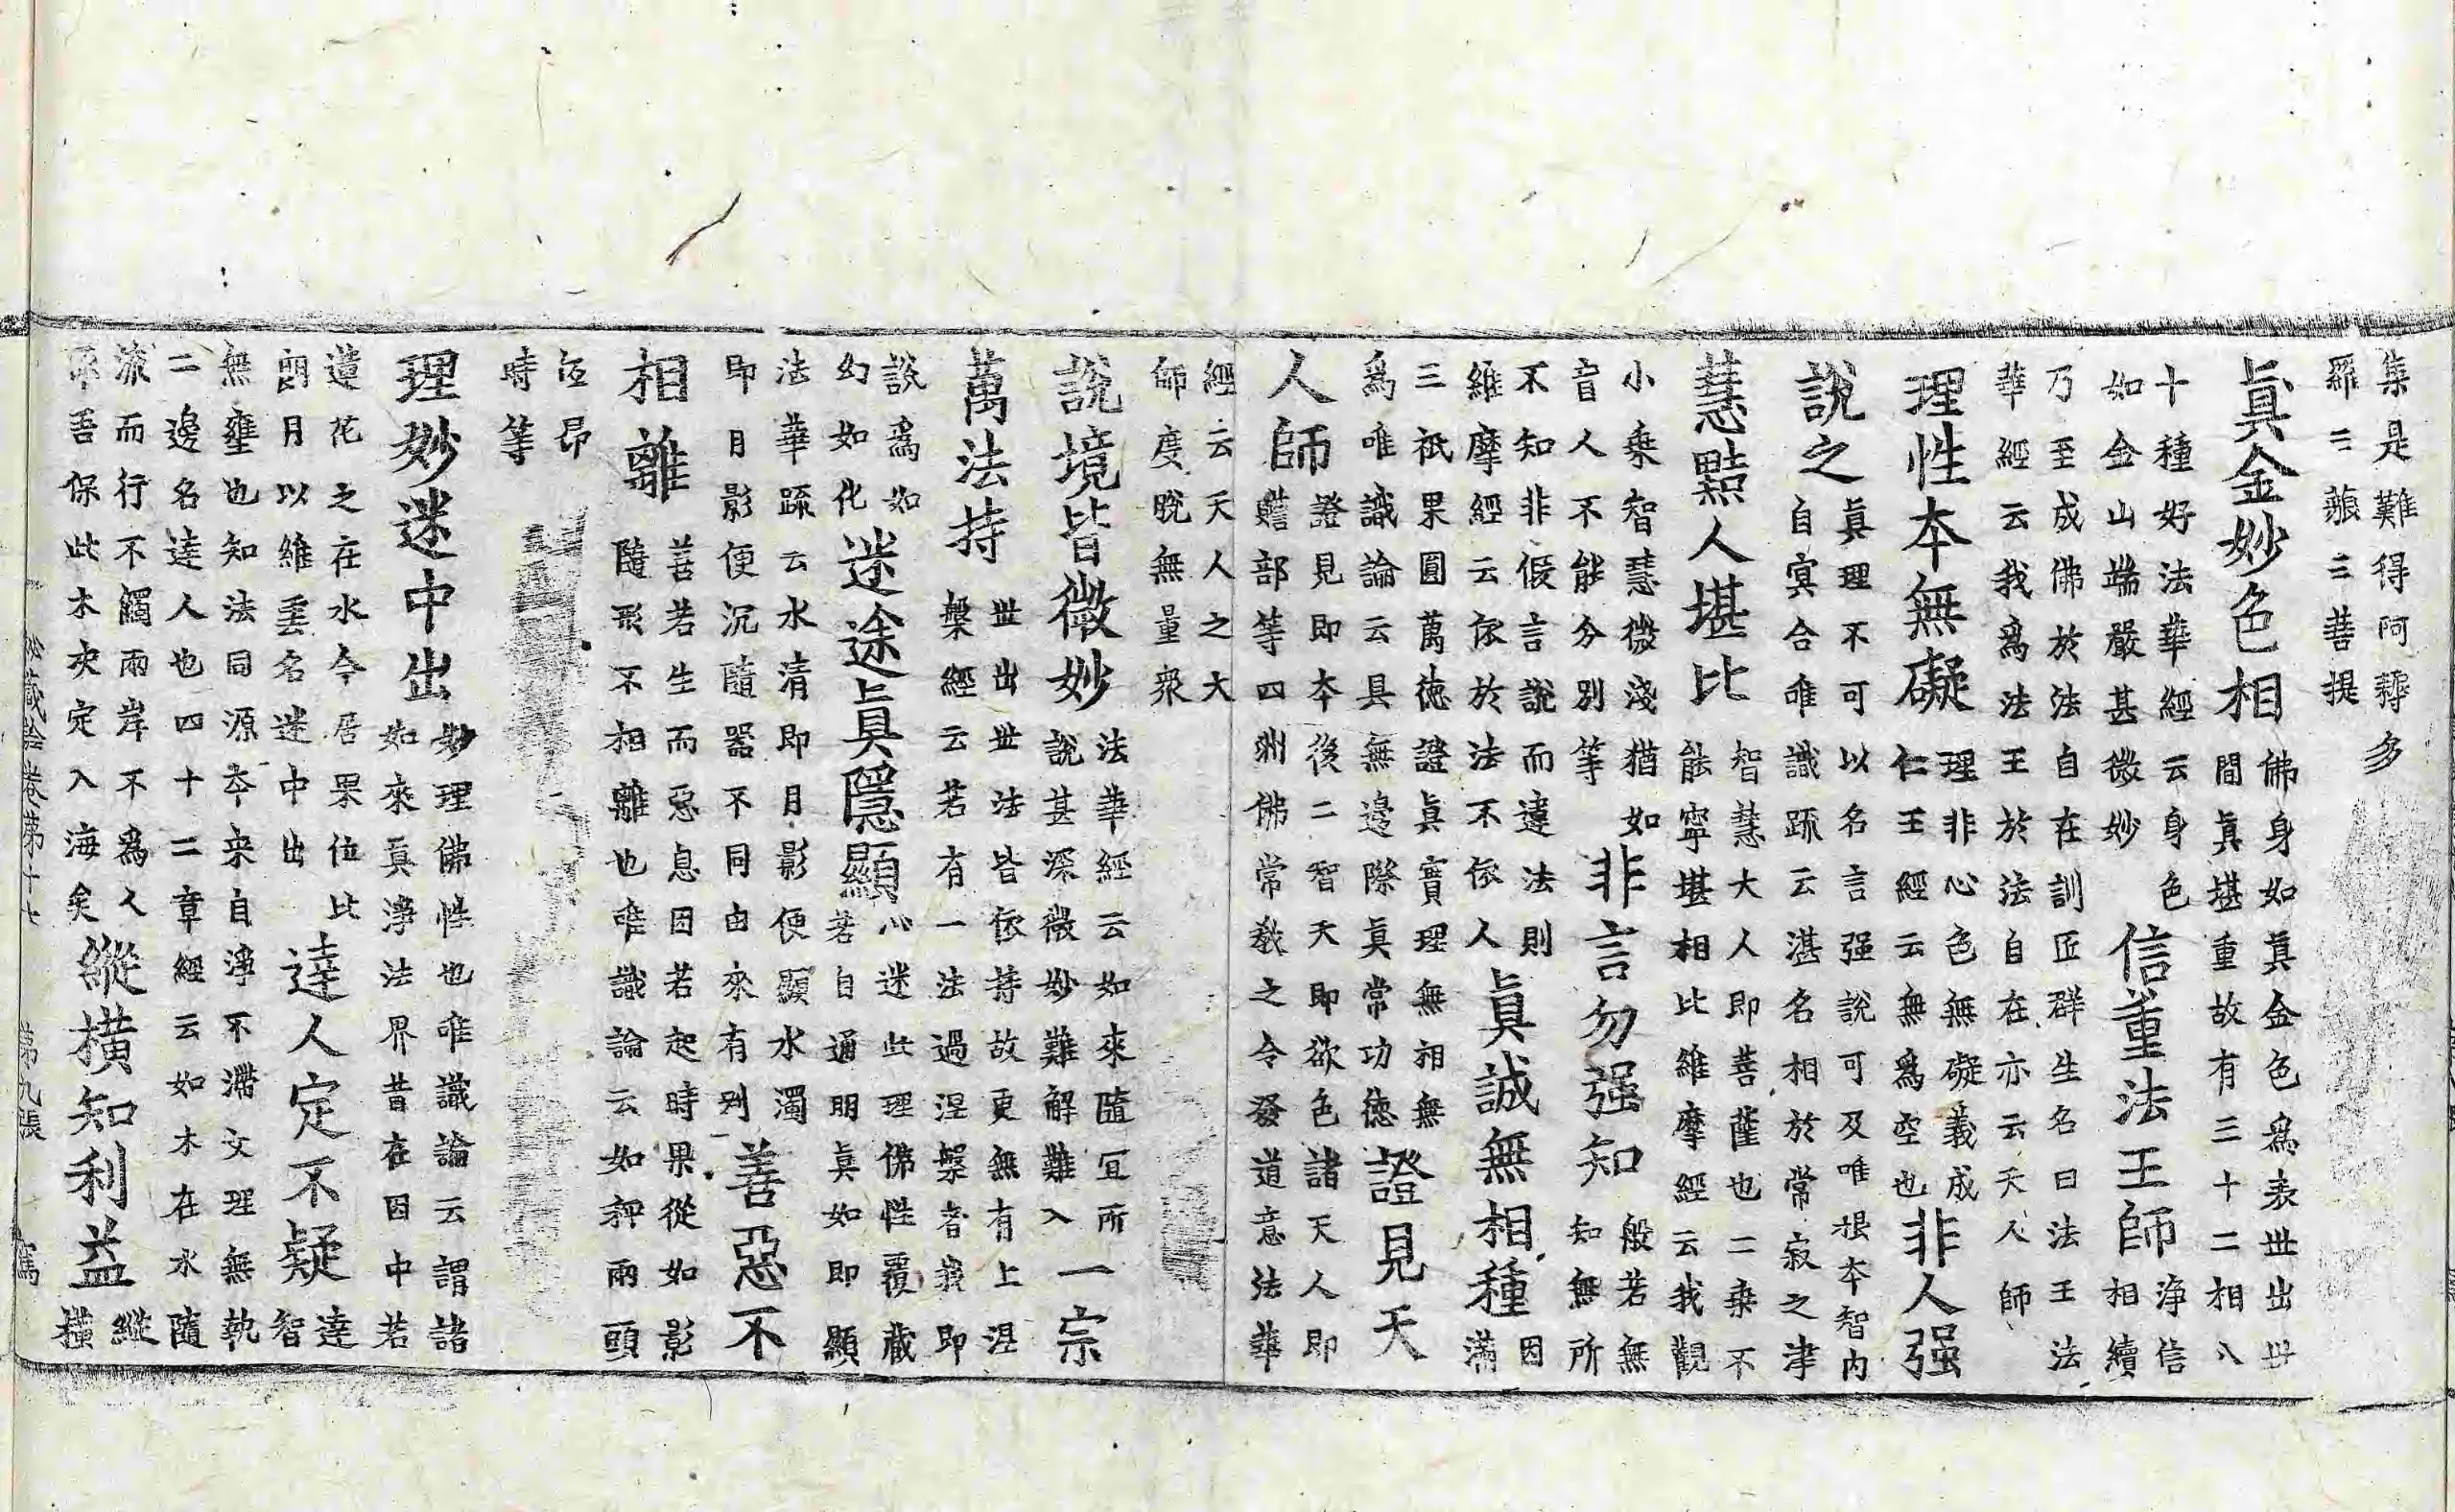 集是難得阿耨多
羅三藐三菩提
眞金妙色相
佛身如真金色爲表世出世
間真堪重故有三十二相八
十種好法華經云身色
如金山端嚴甚微妙
信重法王師
淨信
相續
乃至成佛於法自在訓匠群生名曰法王法
華經云我爲法王於法自在亦云天人師
理性本無礙
理非心色無礙義成
仁王經云無爲空也
非人强
說之
眞理不可以名言强說可及唯根本智内
自冥合唯識疏云湛名相於常寂之津
慧黠人堪比
智慧大人即菩薩也二乘不
能寧堪相比維摩經云我觀
小乘智慧微淺猶如
盲人不能分別等
非言勿强知
般若無
知無所
不知非假言說而違法則
維摩經云依於法不依人
眞誠無相種
因
滿
三祇果圓萬德證真實理無相無
爲唯識論云具無邊際真常功德
證見天
人師
證見即本後二智天即欲色諸天人即
贍部等四洲佛常教之令發道意法華
經云天人之大
師度脫無量衆
說境皆微妙
法華經云如來隨宜所
說甚深微妙難解難入
一宗
萬法持
世出世法皆依持故更無有上涅
槃經云若有一法過涅槃者我即
說爲如
幻如化
迷途眞隱顯
心迷此理佛性覆藏
若自通明真如即顯
法華疏云水清即月影便顯水濁
即月影便沉隨器不同由來有別
善惡不
相離
善若生而惡息因若起時果從如影
隨形不相離也唯識論云如秤兩頭
低昂
時等
理妙迷中出
妙理佛性也唯識論云謂諸
如來真淨法界昔在因中若
蓮花之在水今居果位比
朗月以維垂名迷中出
達人定不疑
達
智
無壅也知法同源本來自淨不滯文理無執
二邊名達人也四十二章經云如木在水隨
流而行不觸兩岸不爲人
吾保此木決定入海矣
縱橫知利益
縱
橫
秘藏詮卷第十七 第九張 寫